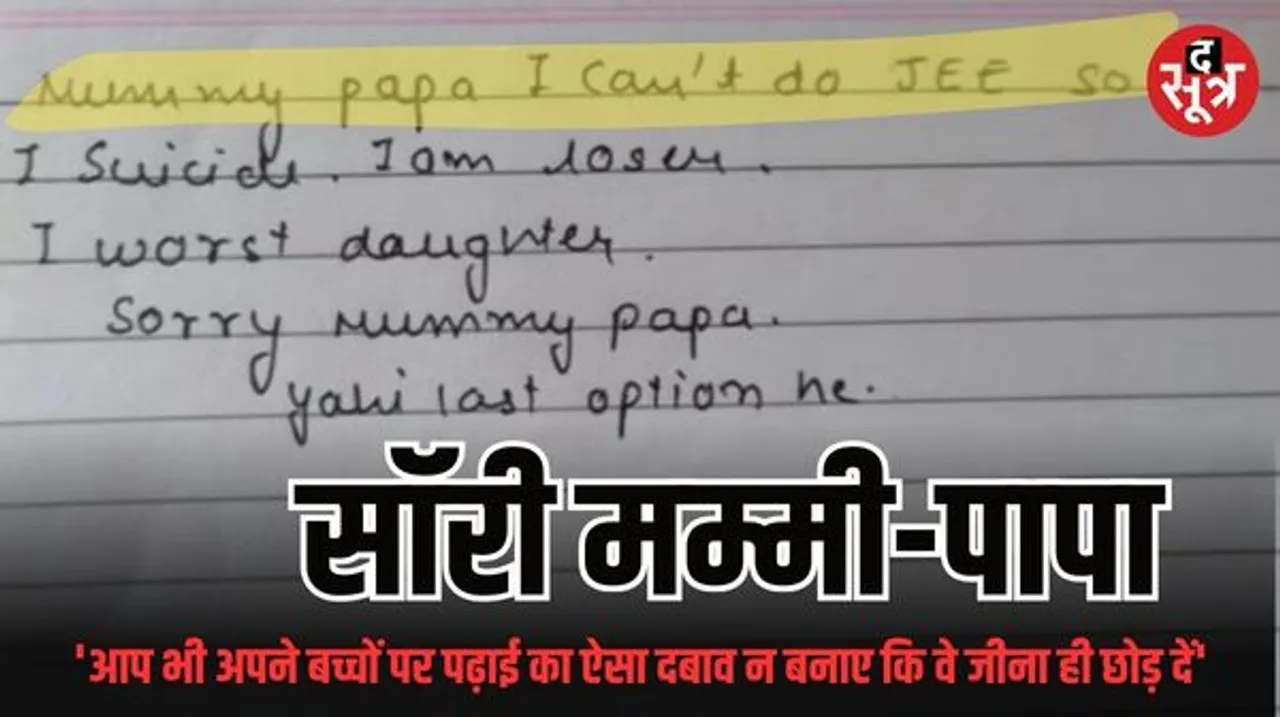 Mummy papa I can't do JEE so
I Suicide. I am loser.
I worst daughter.
Sorry Mummy papa.
yahi last option he.
द सूत्र
सॉरी मम्मी-पापा
'आप भी अपने बच्चों पर पढ़ाई का ऐसा दबाव न बनाए कि वे जीना ही छोड़ दें'